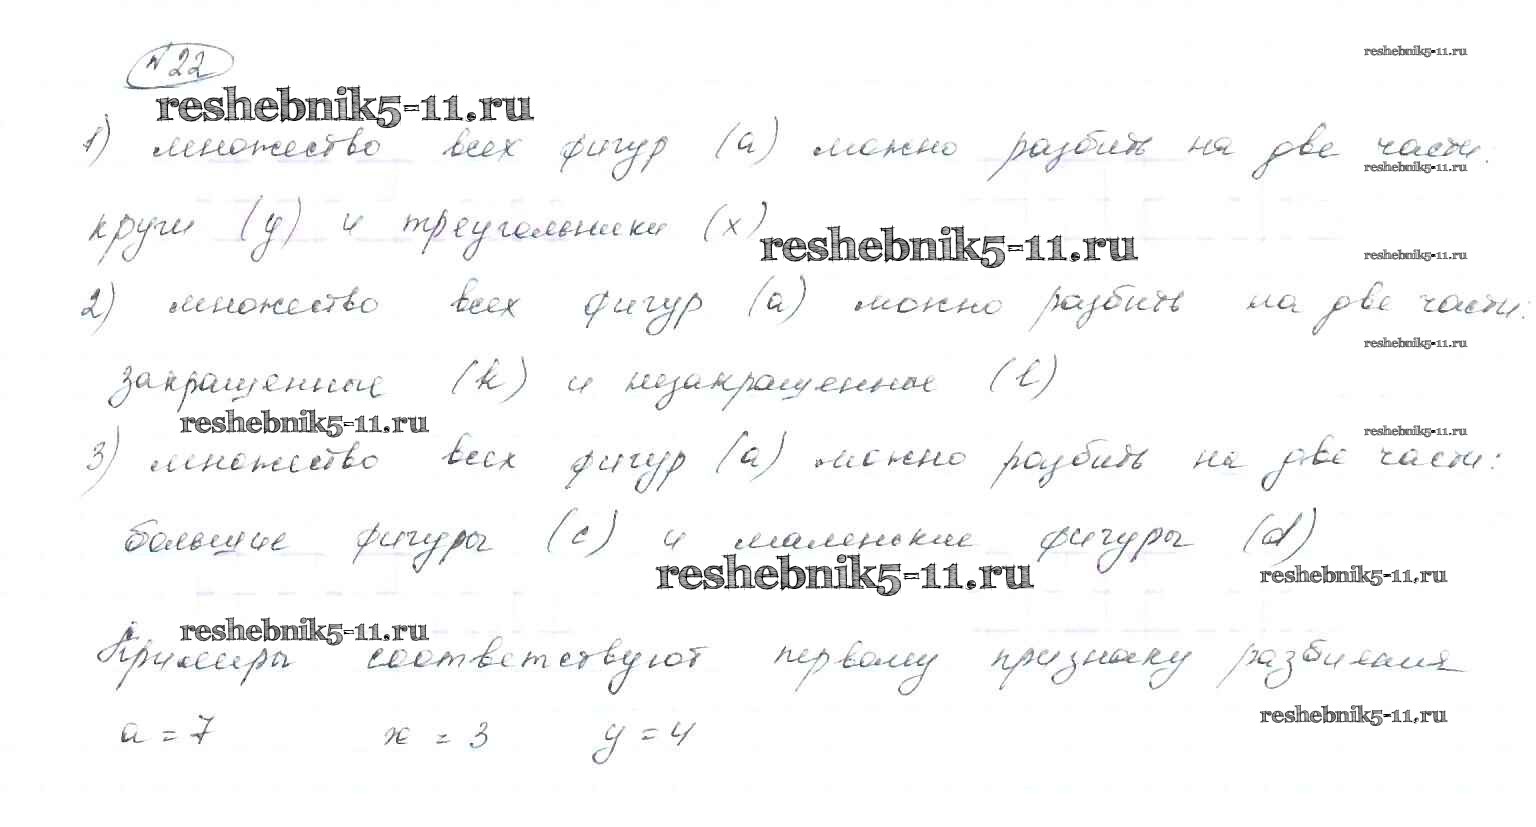 №22
reshebnik5-11.ru
reshebnik5-11.ru
1) множество всех фигур (a) можно разбить на две части:
reshebnik5-11.ru
круги (y) и треугольники (x)
reshebnik5-11.ru
reshebnik5-11.ru
2) множество всех фигур (a) можно разбить на две части:
reshebnik5-11.ru
закрашенные (k) и незакрашенные (l)
reshebnik5-11.ru
reshebnik5-11.ru
3) множество всех фигур (a) можно разбить на две части:
большие фигуры (c) и маленькие фигуры (d)
reshebnik5-11.ru
reshebnik5-11.ru
reshebnik5-11.ru
Примеры соответствуют первому признаку разбиения
reshebnik5-11.ru
a = 7 x = 3 y = 4